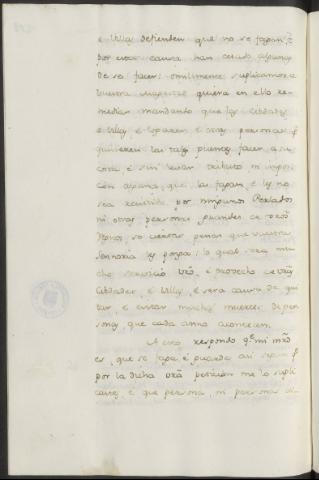 e Villas defienden que no se fagan, e
por esta causa han cesado algunas
de se facer: omillmente suplicamos a
Vuestra Magestad quiera en ello re-
mediar mandando que las Cibdades
e Villas e Logares e otras personas q.
quisieren las tales puentes facer a su
costa e sin llevar tributo ni impos-
cion alguna, que las fagan, e les no
sea resistido por ningunos Perlados
ni otras personas grandes de vros
Reinos so ciertas penas que vuestra
Señoria les ponga; lo qual será mu-
cho servicio vrō, e provecho de vrãs
Cibdades e Villas, e será causa de qui-
tar, e evitar muchas muertes de per-
sonas que cada anno acontecen.
A esto respondo q.e mi mrd
es, que se faga e guarde asi segun q.
por la dicha vrã peticion me lo supli-
castes e que persona, ni personas al-